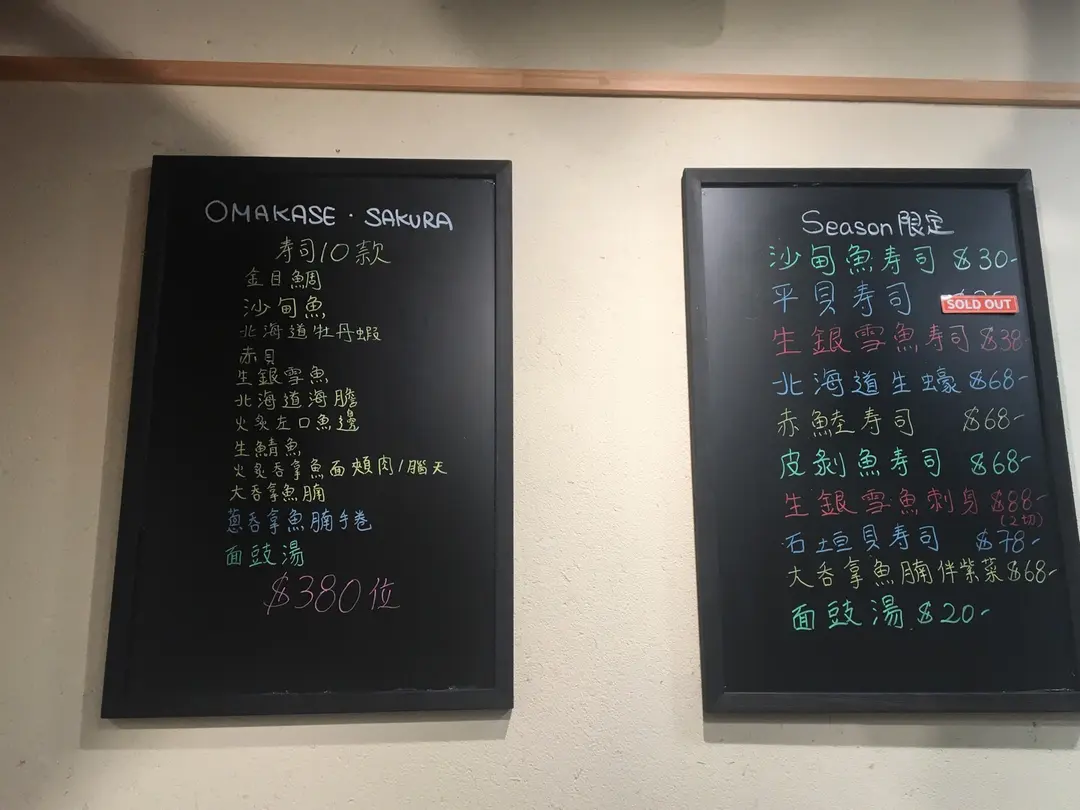 OMAKASE · SAKURA
寿司10款
金目鯛
沙甸魚
北海道牡丹蝦
赤貝
生銀雪魚
北海道海膽
火炙左口魚邊
生鯖魚
火炙吞拿魚面頰肉/腦天
大吞拿魚腩
蔥吞拿魚腩手卷
面豉湯
$380位
Season限定
沙甸魚寿司 $30-
平貝寿司
SOLD OUT
生銀雪魚寿司 $38-
北海道生蠔 $68-
赤鯥寿司 $68-
皮剝魚寿司 $68-
生銀雪魚刺身 $88-
(2切)
石垣貝寿司 $78-
大吞拿魚腩伴紫菜 $68-
面豉湯 $20-